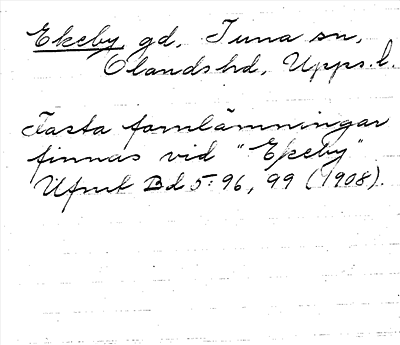 Ekeby gd, Tuna sn,
Olands hd, Upps. l.
Fasta fornlämningar
finnas vid "Ekeby"
Ufmt Bd 5: 96, 99 (1908).